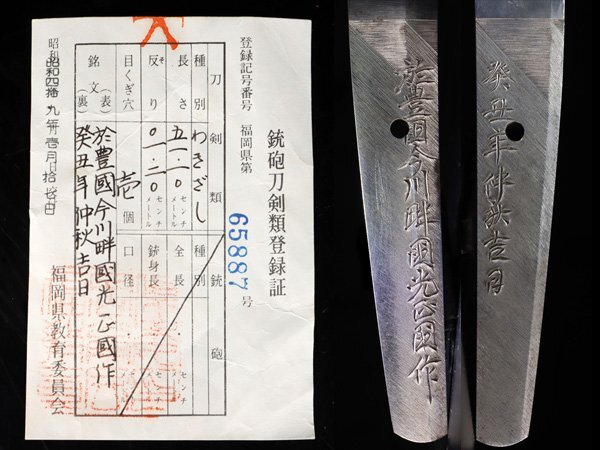 銃砲刀剣類登録証
登録記号番号 福岡県第 65887 号
刀剣類
銃砲
種別 わきざし
長さ 五一・〇 センチメートル
反り 〇一・二〇 センチメートル
目くぎ穴 壱個
銘文(表) 於豊國今川畔國光正國作
(裏) 癸丑年仲秋吉日
種別
全長 センチメートル
銃身長 センチメートル
口径
昭和四拾九年壱月
福岡県教育委員会
於豊国今川畔国光正国作
癸丑年仲秋吉日